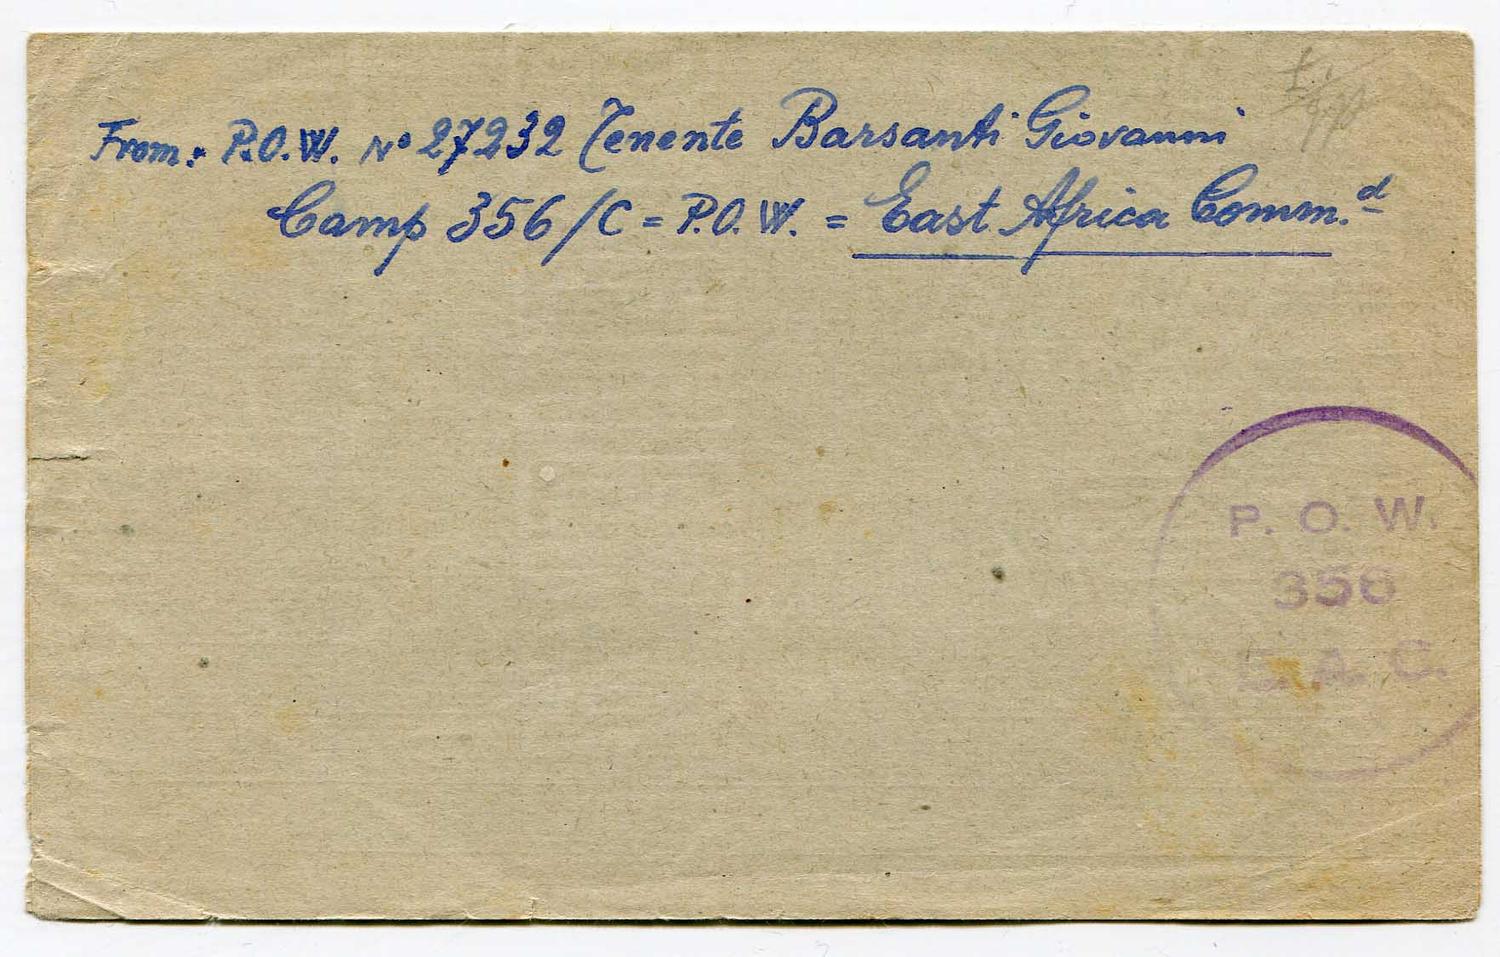 From:- P.O.W. No 27232 Tenente Barsanti Giovanni
Camp 356/C = P.O.W. = East Africa Comm.d
P. O. W.
356
E. A. C.